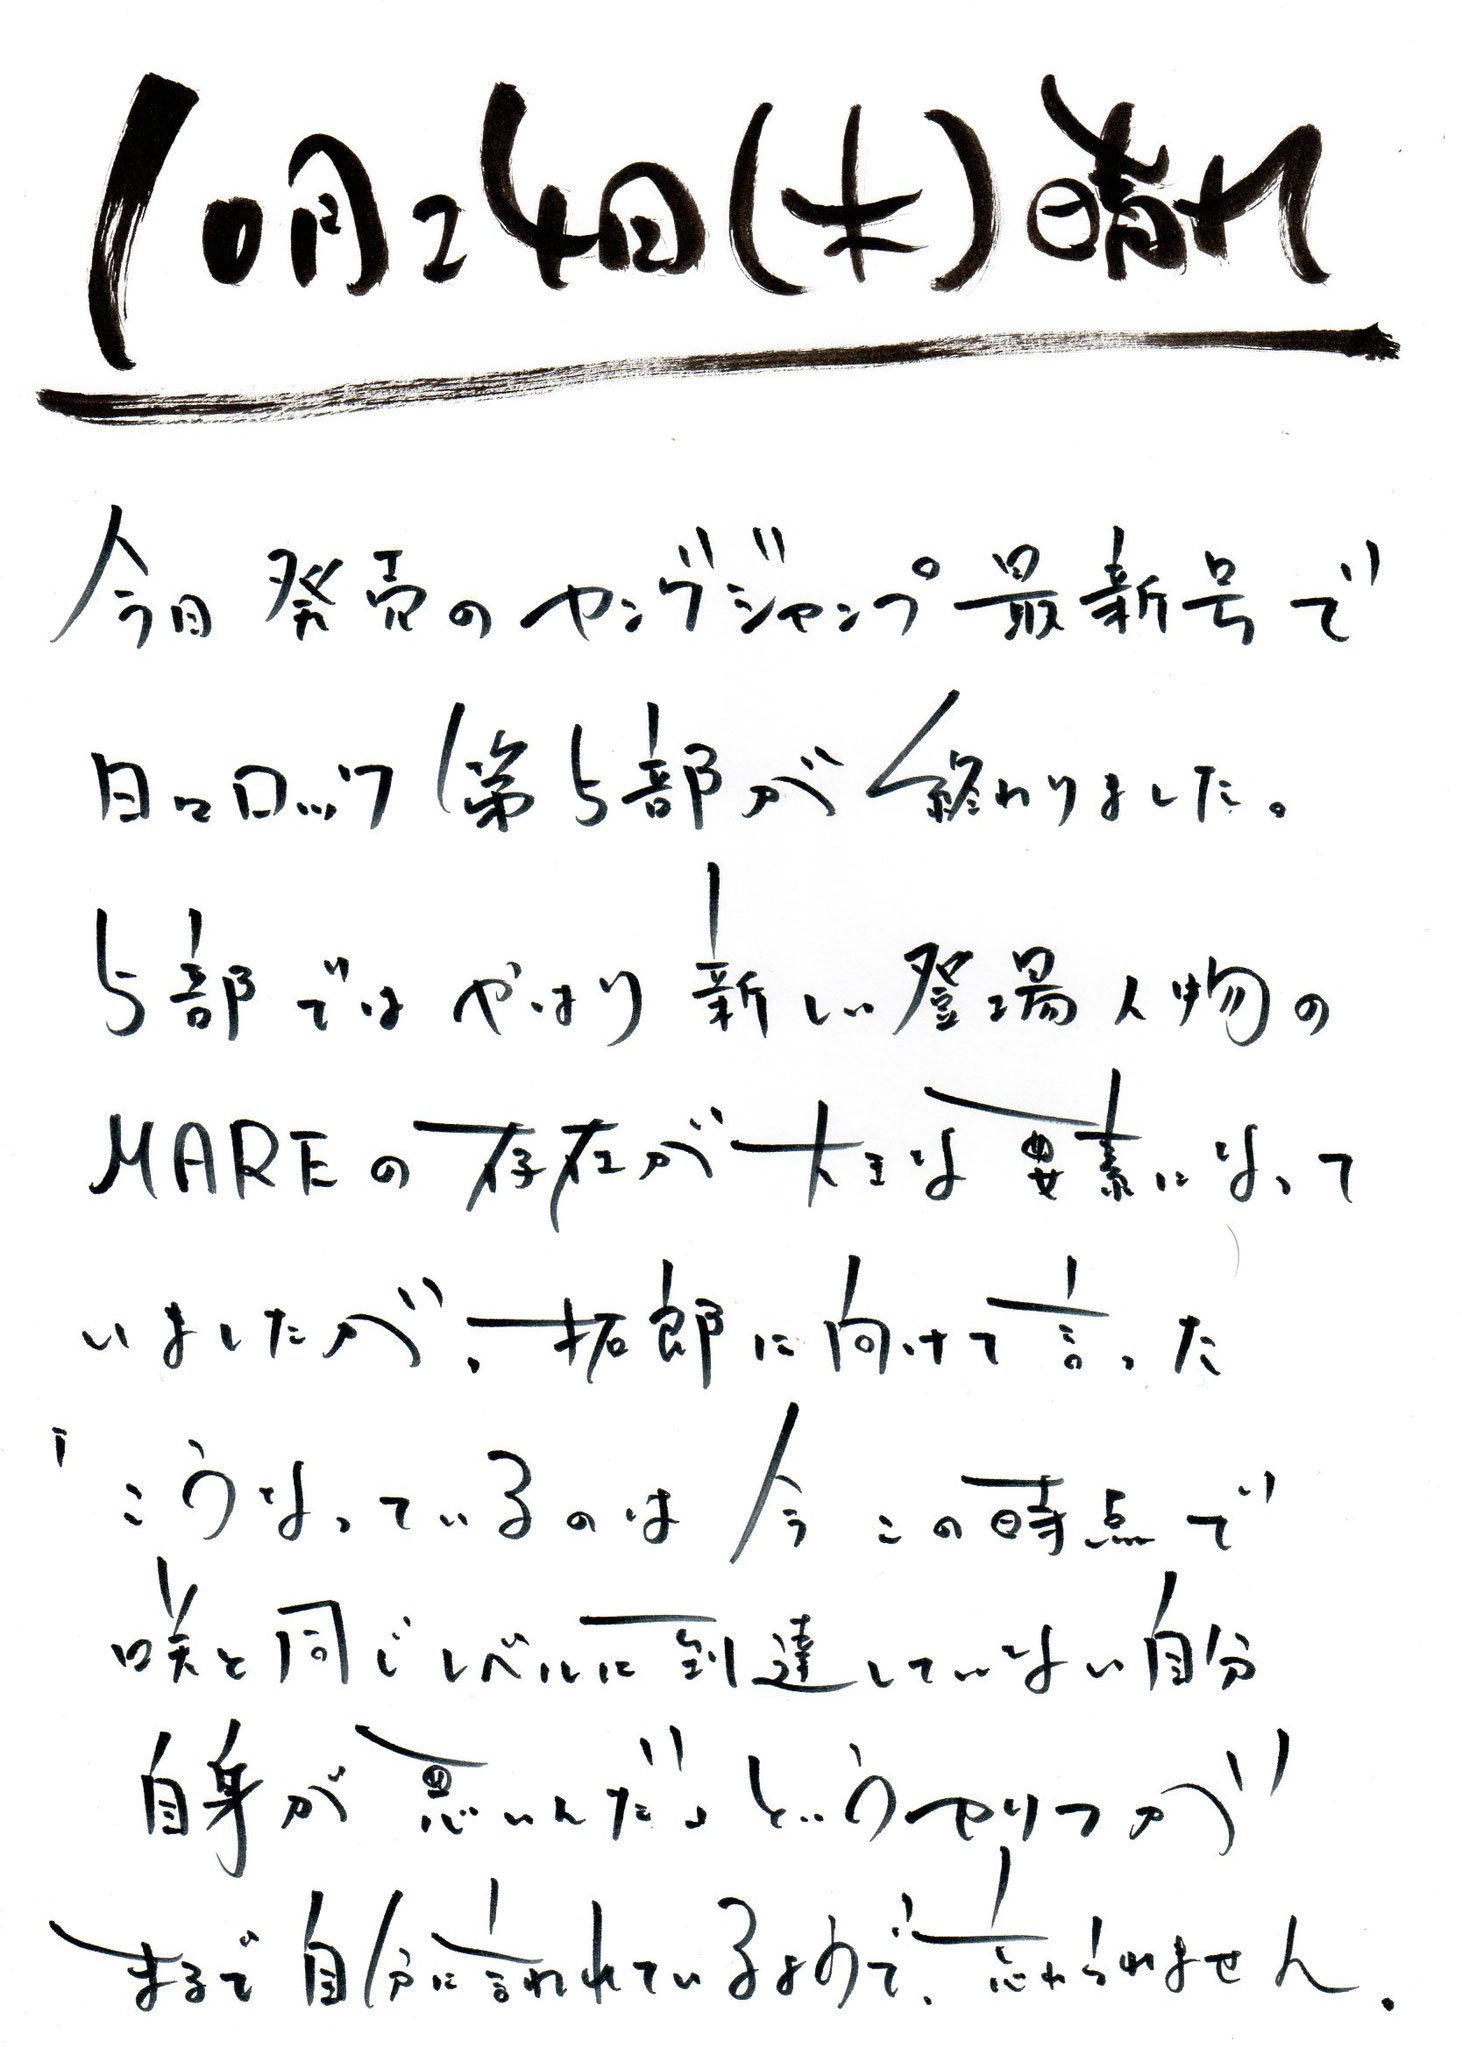 10月24日(木)晴れ
今日発売のヤングジャンプ最新号で
日々ロック第5部が終わりました。
5部ではやはり新しい登場人物の
MAREの存在が大きな要素になって
いましたが、拓郎に向けて言った
「こうなっているのは今この時点で
咲と同じレベルに到達していない自分
自身が悪いんだ」というセリフが
まるで自分に言われているようで、忘れられません.